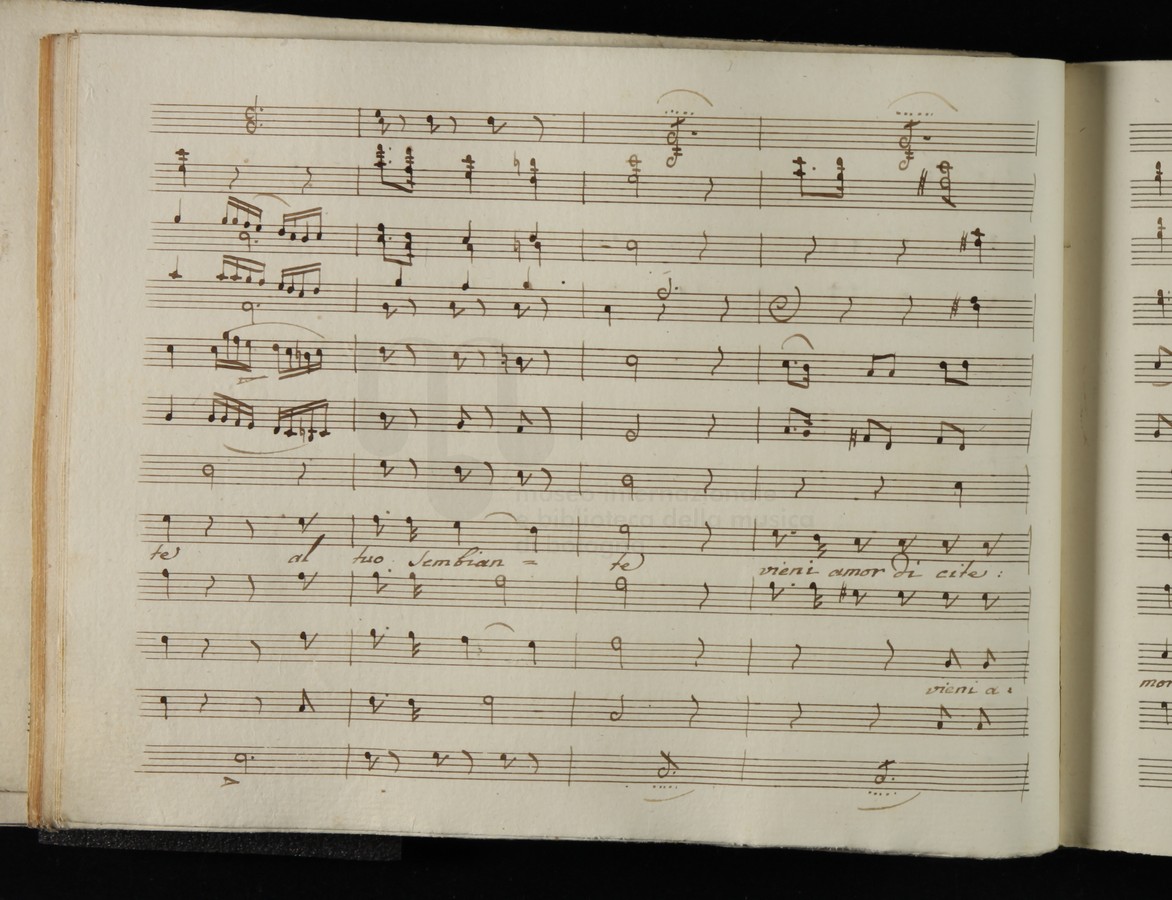 museo internazionale
e biblioteca della musica
te al tuo sembian = te vieni amor di cite :
vieni a :
mor